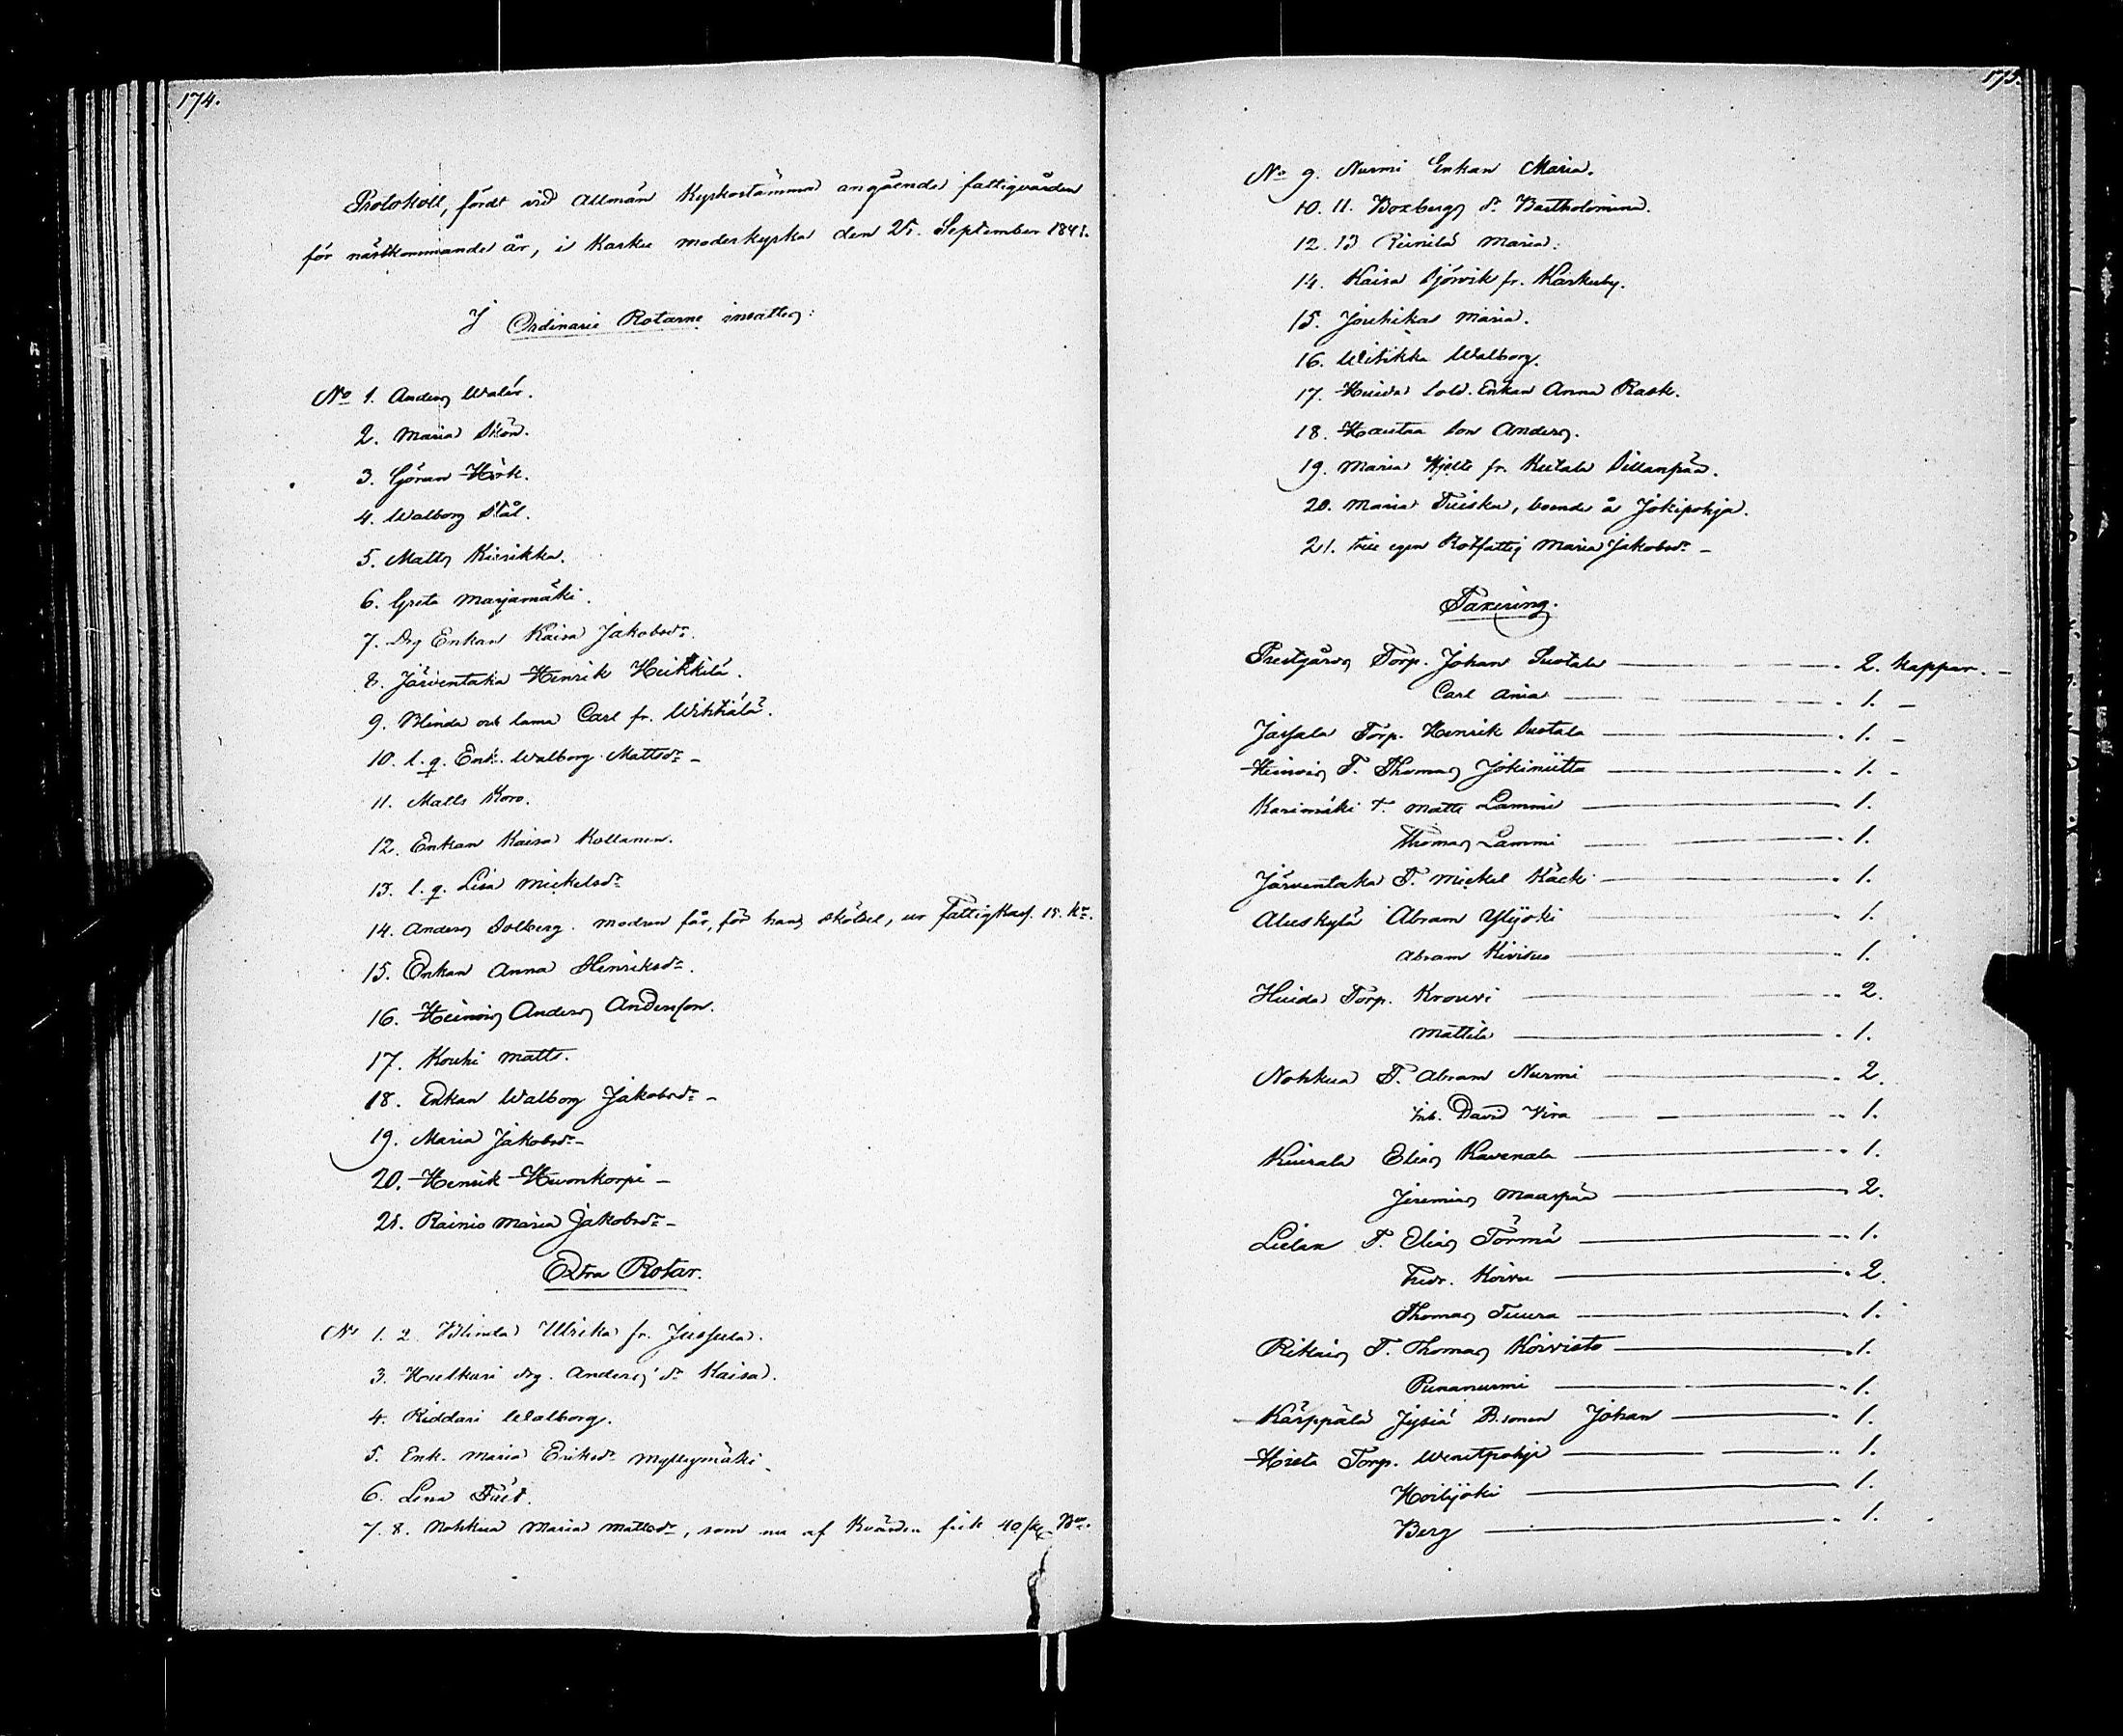 174.
Protokoll, fördt vid Allmän Kyrkostämma angående fattigvården
för nästkommande år, i Karku moderkyrka den 25. September 1841.
I Ordinarie Rotarne insattes:
No 1. Anders Walén.
2. Maria Skön.
3. Göran Hök.
4. Walborg Stål.
5. Matts Kiirikka.
6. Greta Marjamäki.
7. Drg Enkan Kaisa Jakobsdr.
8. Järventaka Henrik Heikkilä.
9. Blinda och lama Carl fr. Wihtiälä.
10. l. q. Enk. Walborg Mattsdr -
11. Matts Koro.
12. Enkan Kaisa Kollanen.
13. l. q. Lisa Mickelsdr
14. Anders Solberg. modren får, för hans skötsel, ur Fattigkass. 15. kr.
15. Enkan Anna Henriksdr.
16. Heinois Anders Andersson.
17. Kouhi Matts.
18. Enkan Walborg Jakobsdr -
19. Maria Jakobsdr -
20. Henrik Hevonkorpi -
21. Rainio Maria Jakobsdr -
Extra Rotar.
No 1. 2. Blinda Ulrika fr. Jussula.
3. Hulkuri drg. Anders dr Kaisa.
4. Riddari Walborg.
5. Enk. Maria Eriksdr Myllymäki.
6. Lena
7. 8. Nohkua Maria Mattsdr, som nu af Kvarden fick 40 Bco.
175.
No 9. Nurmi Enkan Maria.
10. 11. Boxbergs dr Bartholomina.
12. 13 Reinilä Maria.
14. Kaisa Björvik fr. Karkuby.
15. Jouhika Maria.
16. Witikka Walborg.
17. Huida Sold. Enkan Anna Rask.
18. Hautaa Son Anders.
19. Maria Hjelt fr. Kutala Sillanpää.
20. Maria Tuisku, boende å Jokipohja.
21. till egen Rotfattig Maria Jakobsdr -
Taxering.
Prestgårds Torp. Johan Suotala 2. kappar. -
Carl Ania 1. -
Jaissala Torp. Henrik Suotala 1. -
Heinois T. Thomas Jokiniitta 1. -
Karimäki T. Matts Lammi 1.
Thomas Lammi 1.
Järventaka T. Mickel Käck 1.
Aluskylä Abram Ylijoki 1.
Abram Kivisuo 1.
Huida Torp. Krouvi 2.
Mattila 1.
Nohkua T. Abram Nurmi 2.
Inh. David Vira 1.
Kiurala Elias Kavenala 1.
Jeremias Maaspää 2.
Lielax T. Elias Törmä 1.
Fredr. Koivu 2.
Thomas Tuura 1.
Rikais T. Thomas Koivisto 1.
Punanurmi 1.
Kärppälä Jyssä B.sonen Johan 1.
Hieta Torp. Wenetpohja 1.
Koilijoki 1.
Berg 1.